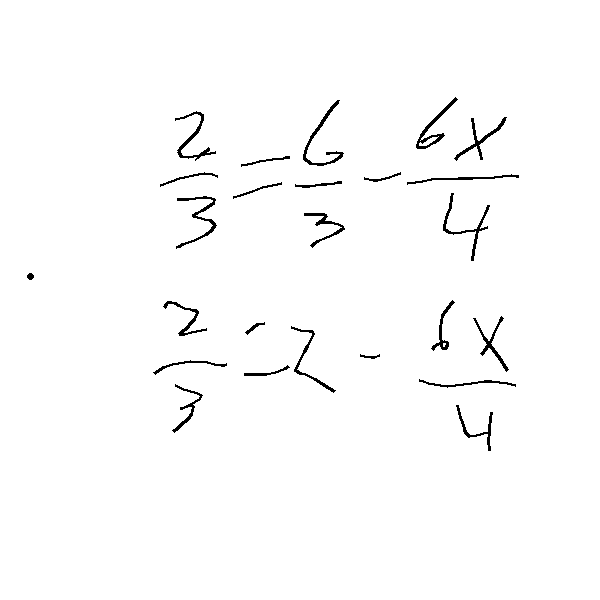 2/3 = 6/3 - 6x/4
2/3 = 2 - 6x/4